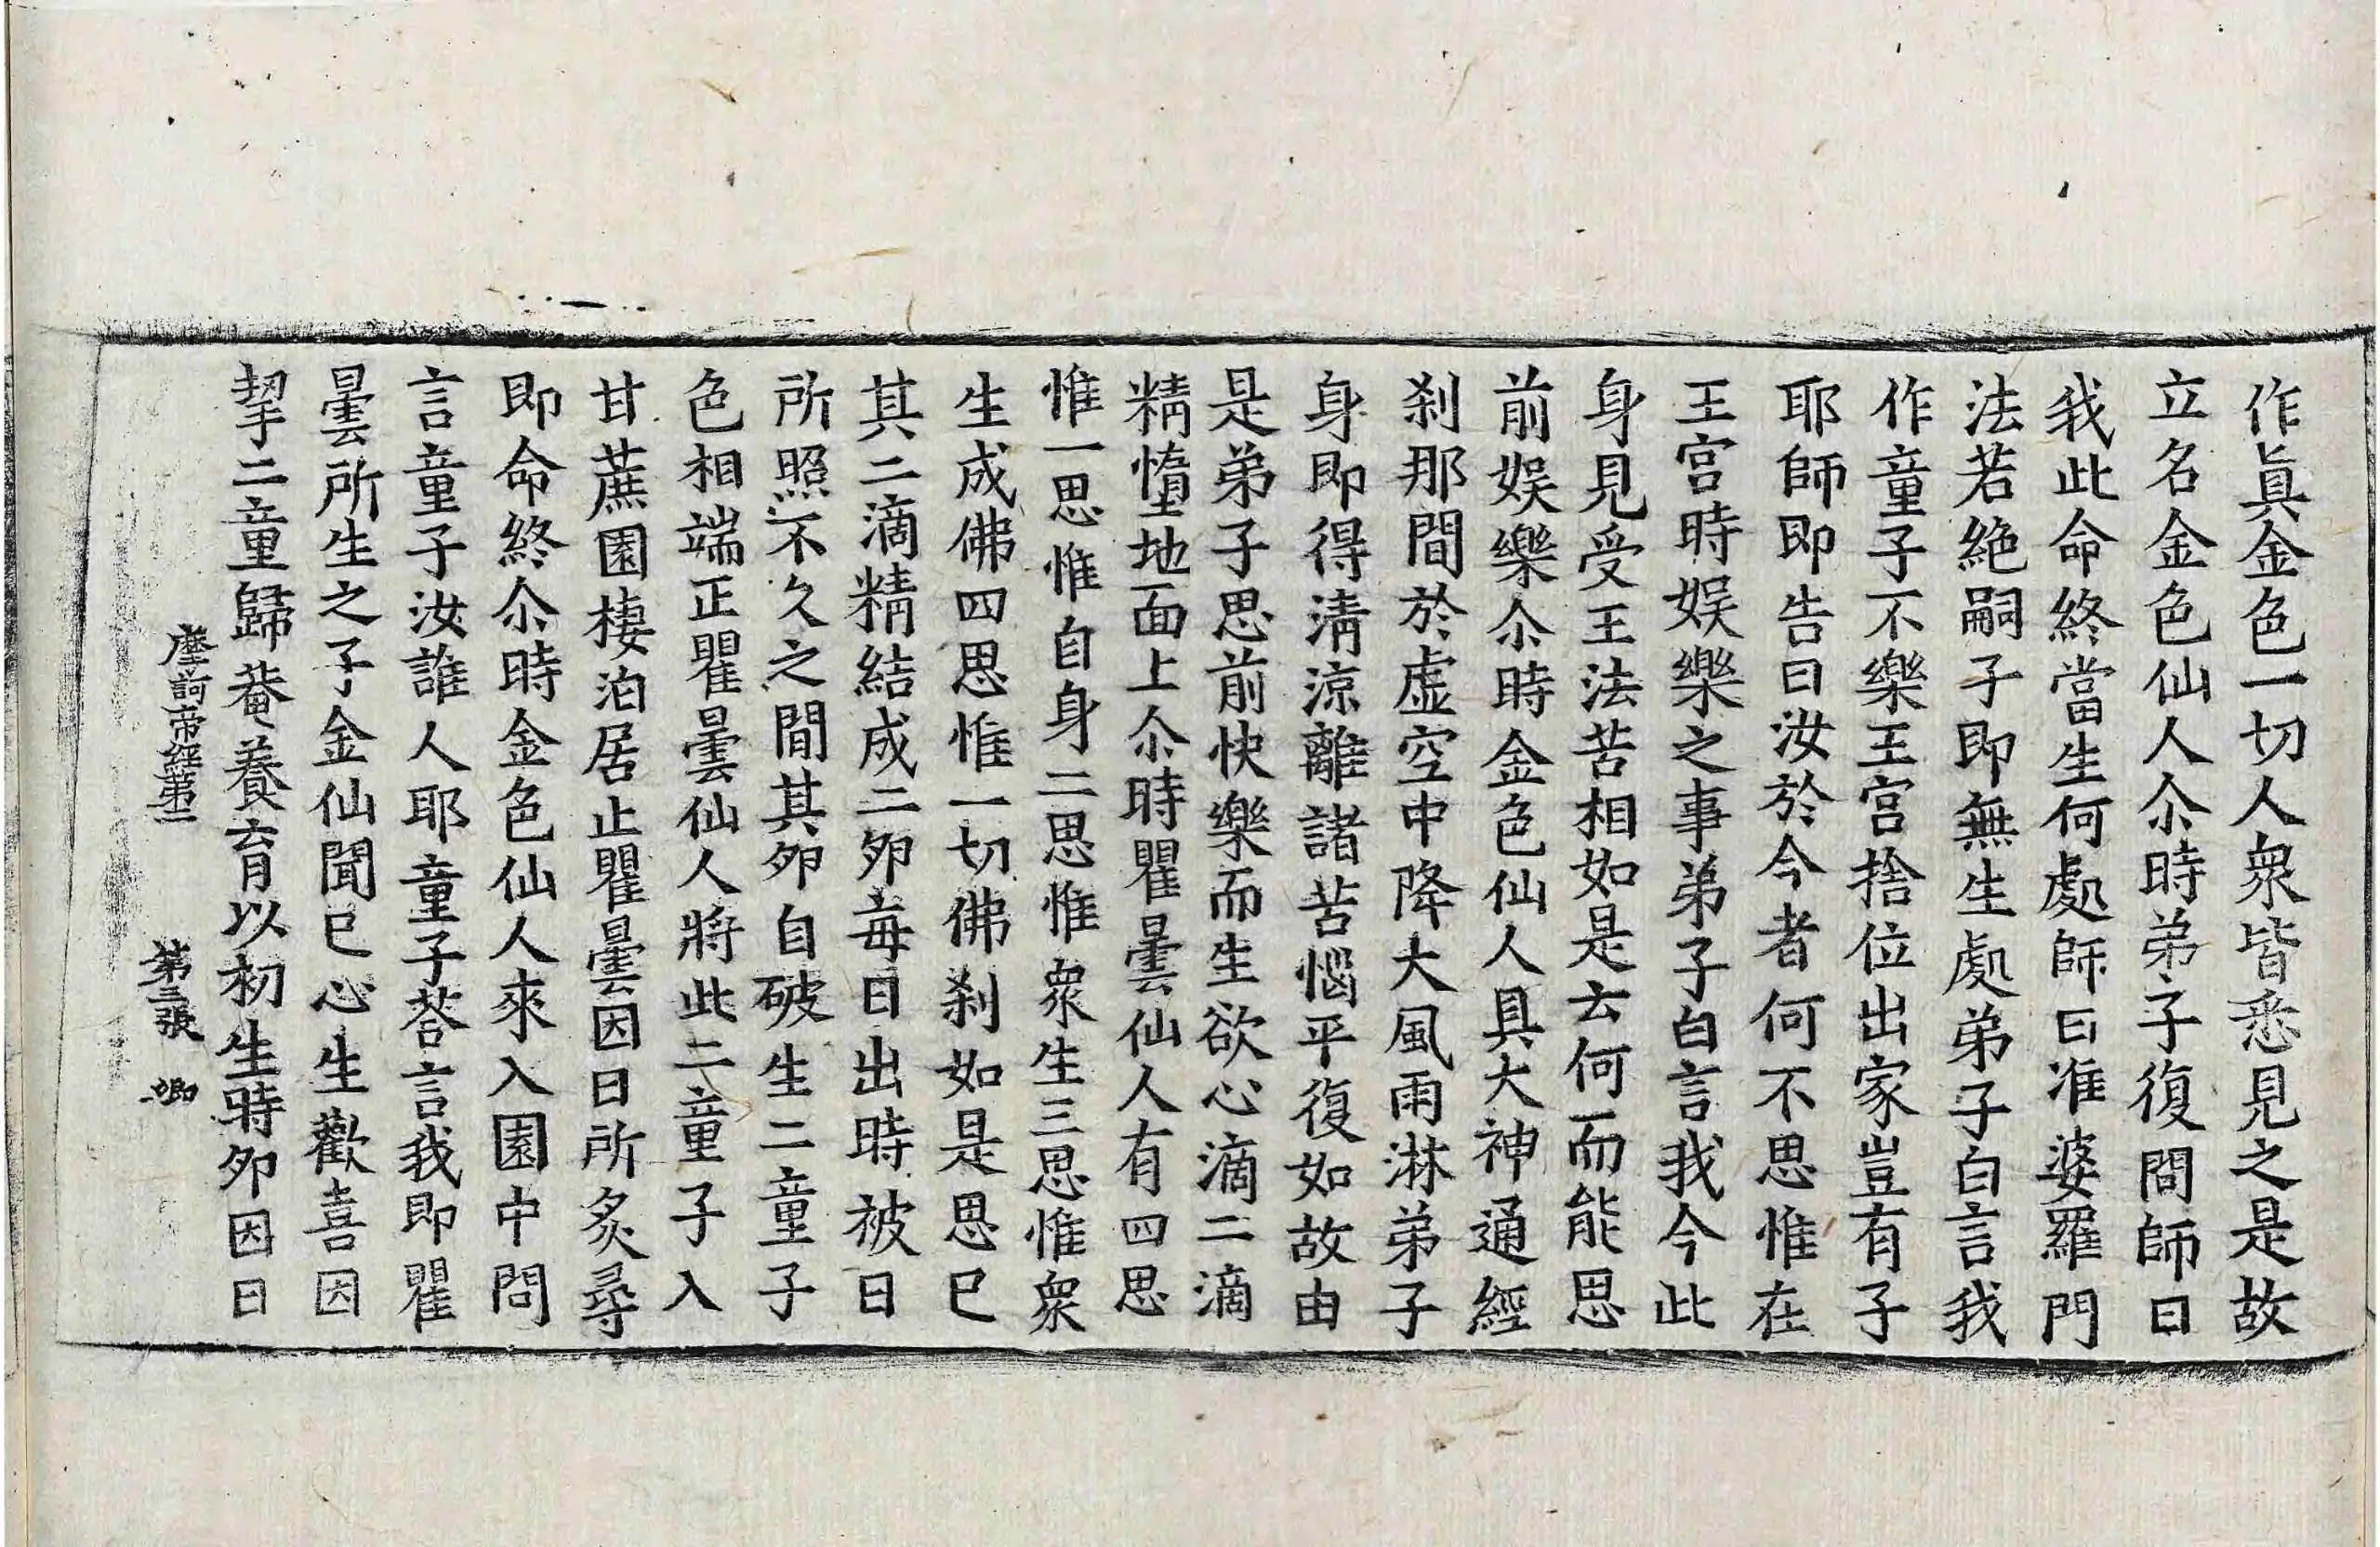 作眞金色一切人衆皆悉見之是故
立名金色仙人尒時弟子復問師曰
我此命終當生何處師曰准婆羅門
法若絶嗣子即無生處弟子白言我
作童子不樂王宮捨位出家豈有子
耶師即告曰汝於今者何不思惟在
王宮時娯樂之事弟子白言我今此
身見受王法苦相如是去何而能思
前娯樂尒時金色仙人具大神通經
刹那間於虛空中降大風雨淋弟子
身即得淸涼離諸苦惱平復如故由
是弟子思前快樂而生欲心滴二滴
精墮地面上尒時瞿曇仙人有四思
惟一思惟自身二思惟衆生三思惟衆
生成佛四思惟一切佛刹如是思已
其二滴精結成二夘每日出時被日
所照不久之間其夘自破生二童子
色相端正瞿曇仙人將此二童子入
甘蔗園棲泊居止瞿曇因日所炙尋
即命終尒時金色仙人來入園中問
言童子汝誰人耶童子荅言我即瞿
曇所生之子金仙聞已心生歡喜因
挈二童歸菴養育以初生時夘因日
摩訶帝經第二 第三張 卿